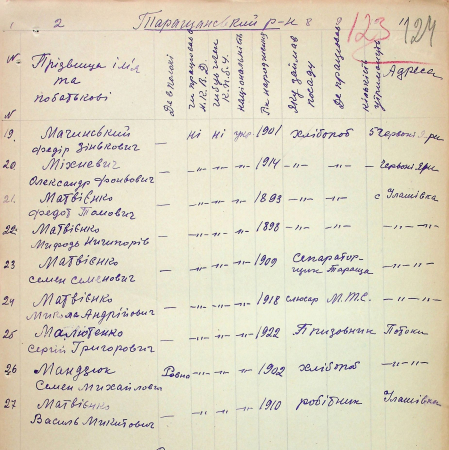 1 2 Таращанский р-н 8 123 11 124
№ Прізвище ім'я та побатькові
Де в полоні
чи працював Н.К.В.Д.
чи був член К.П.б.У.
національність
Рік народження
Яку займав посаду
Де працював
кількість
Адреса
N
19. Мачинський Федір Зінькович — ні ні укр. 1901 хлібороб 5 червоні Яри
20. Міхневич Олександр — -"- -"- -"- 1914 -"- -"- червоні Яри
21. Матвієнко Федот — -"- -"- -"- 1893 -"- -"- с Улашівка
22. Матвієнко Мифодь Ничипорів — -"- -"- -"- 1898 -"- -"- -"-
23 Матвієнко Семен Семенович — -"- -"- -"- 1909 Сепаратор- щик Тараща -"-
24 Матвієнко Микола Андрійович — -"- -"- -"- 1918 слюсар М.Т.С. -"-
25 Малютенко Сергій Григорович — -"- -"- -"- 1922 Призовник Потоки
26 Мандзюк Семен Михайлович Ровно -"- -"- -"- 1902 хлібороб -"-
27 Матвієнко Василь Микитович — -"- -"- -"- 1910 робітник Улашівка